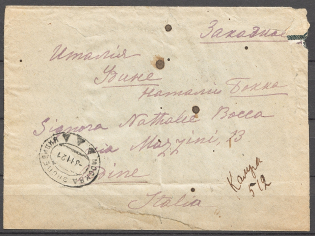 Заказное
Италія
Удине
Натали Бокка
Signora Nathalie Bocca
Via Mazzini, 13
Udine
Italia
МОСКВА
11 21
5/2